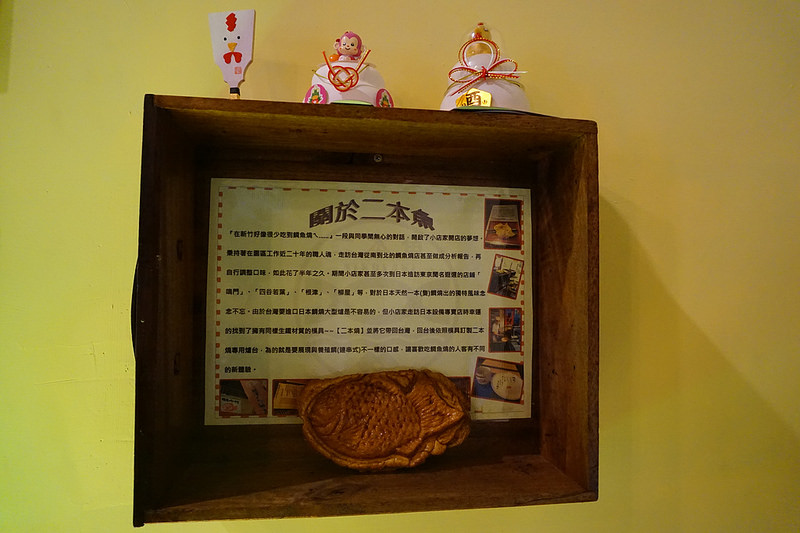 酉
關於二本魚
「在新竹好像很少吃到鯛魚燒ㄟ......」一段與同學間無心的對話，開啟了小店家開店的夢想，
秉持著在園區工作近二十年的職人魂，走訪台灣從南到北的鯛魚燒店甚至做成分析報告，再
自行調整口味，如此花了半年之久，期間小店家甚至多次到日本造訪東京聞名遐邇的店舖「
鳴門」、「四谷若葉」、「根津」、「柳屋」等，對於日本天然一本(隻)鯛燒出的獨特風味念
念不忘。由於台灣要進口日本鯛燒大型爐是不容易的，但小店家走訪日本設備專賣店時幸運
的找到了擁有同樣生鐵材質的模具~~【二本燒】並將它帶回台灣，回台後依照模具訂製二本
燒專用爐台，為的就是要展現與養殖鯛(連串式)不一樣的口感，讓喜歡吃鯛魚燒的人客有不同
的新體驗。